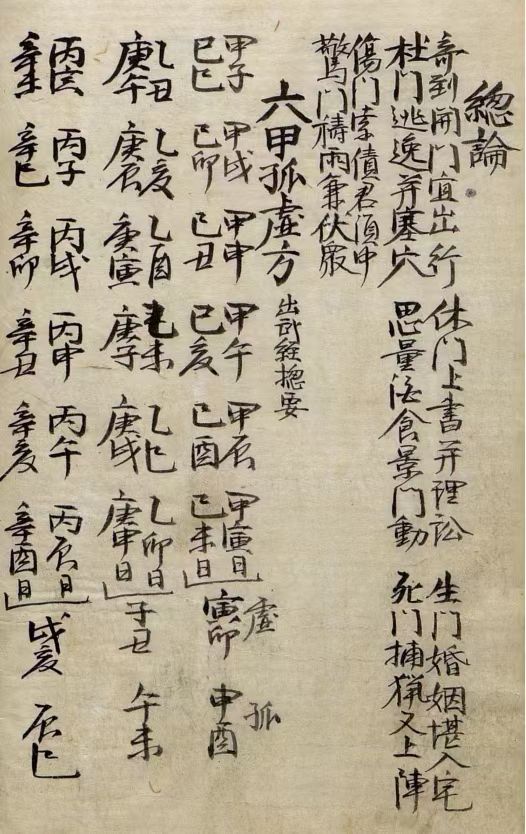 總論
奇到開門宜出行 休門上書并理訟 生門婚姻堪入宅
杜門逃逸并塞穴 思量酒食景門動 死門捕猟又上陣
傷門索債君須申
驚門禱雨兼伏眾
六甲孤虛方 出武經揔要
虛 孤
甲子 甲戌 甲申 甲午 甲辰 甲寅日
己巳 己卯 己丑 己亥 己酉 己未日 寅卯 申酉
乙丑 乙亥 乙酉 乙未 乙巳 乙卯日
庚午 庚辰 庚寅 庚子 庚戌 庚申日 子丑 午未
丙寅 丙子 丙戌 丙申 丙午 丙辰日
辛未 辛巳 辛卯 辛丑 辛亥 辛酉日 戌亥 辰巳